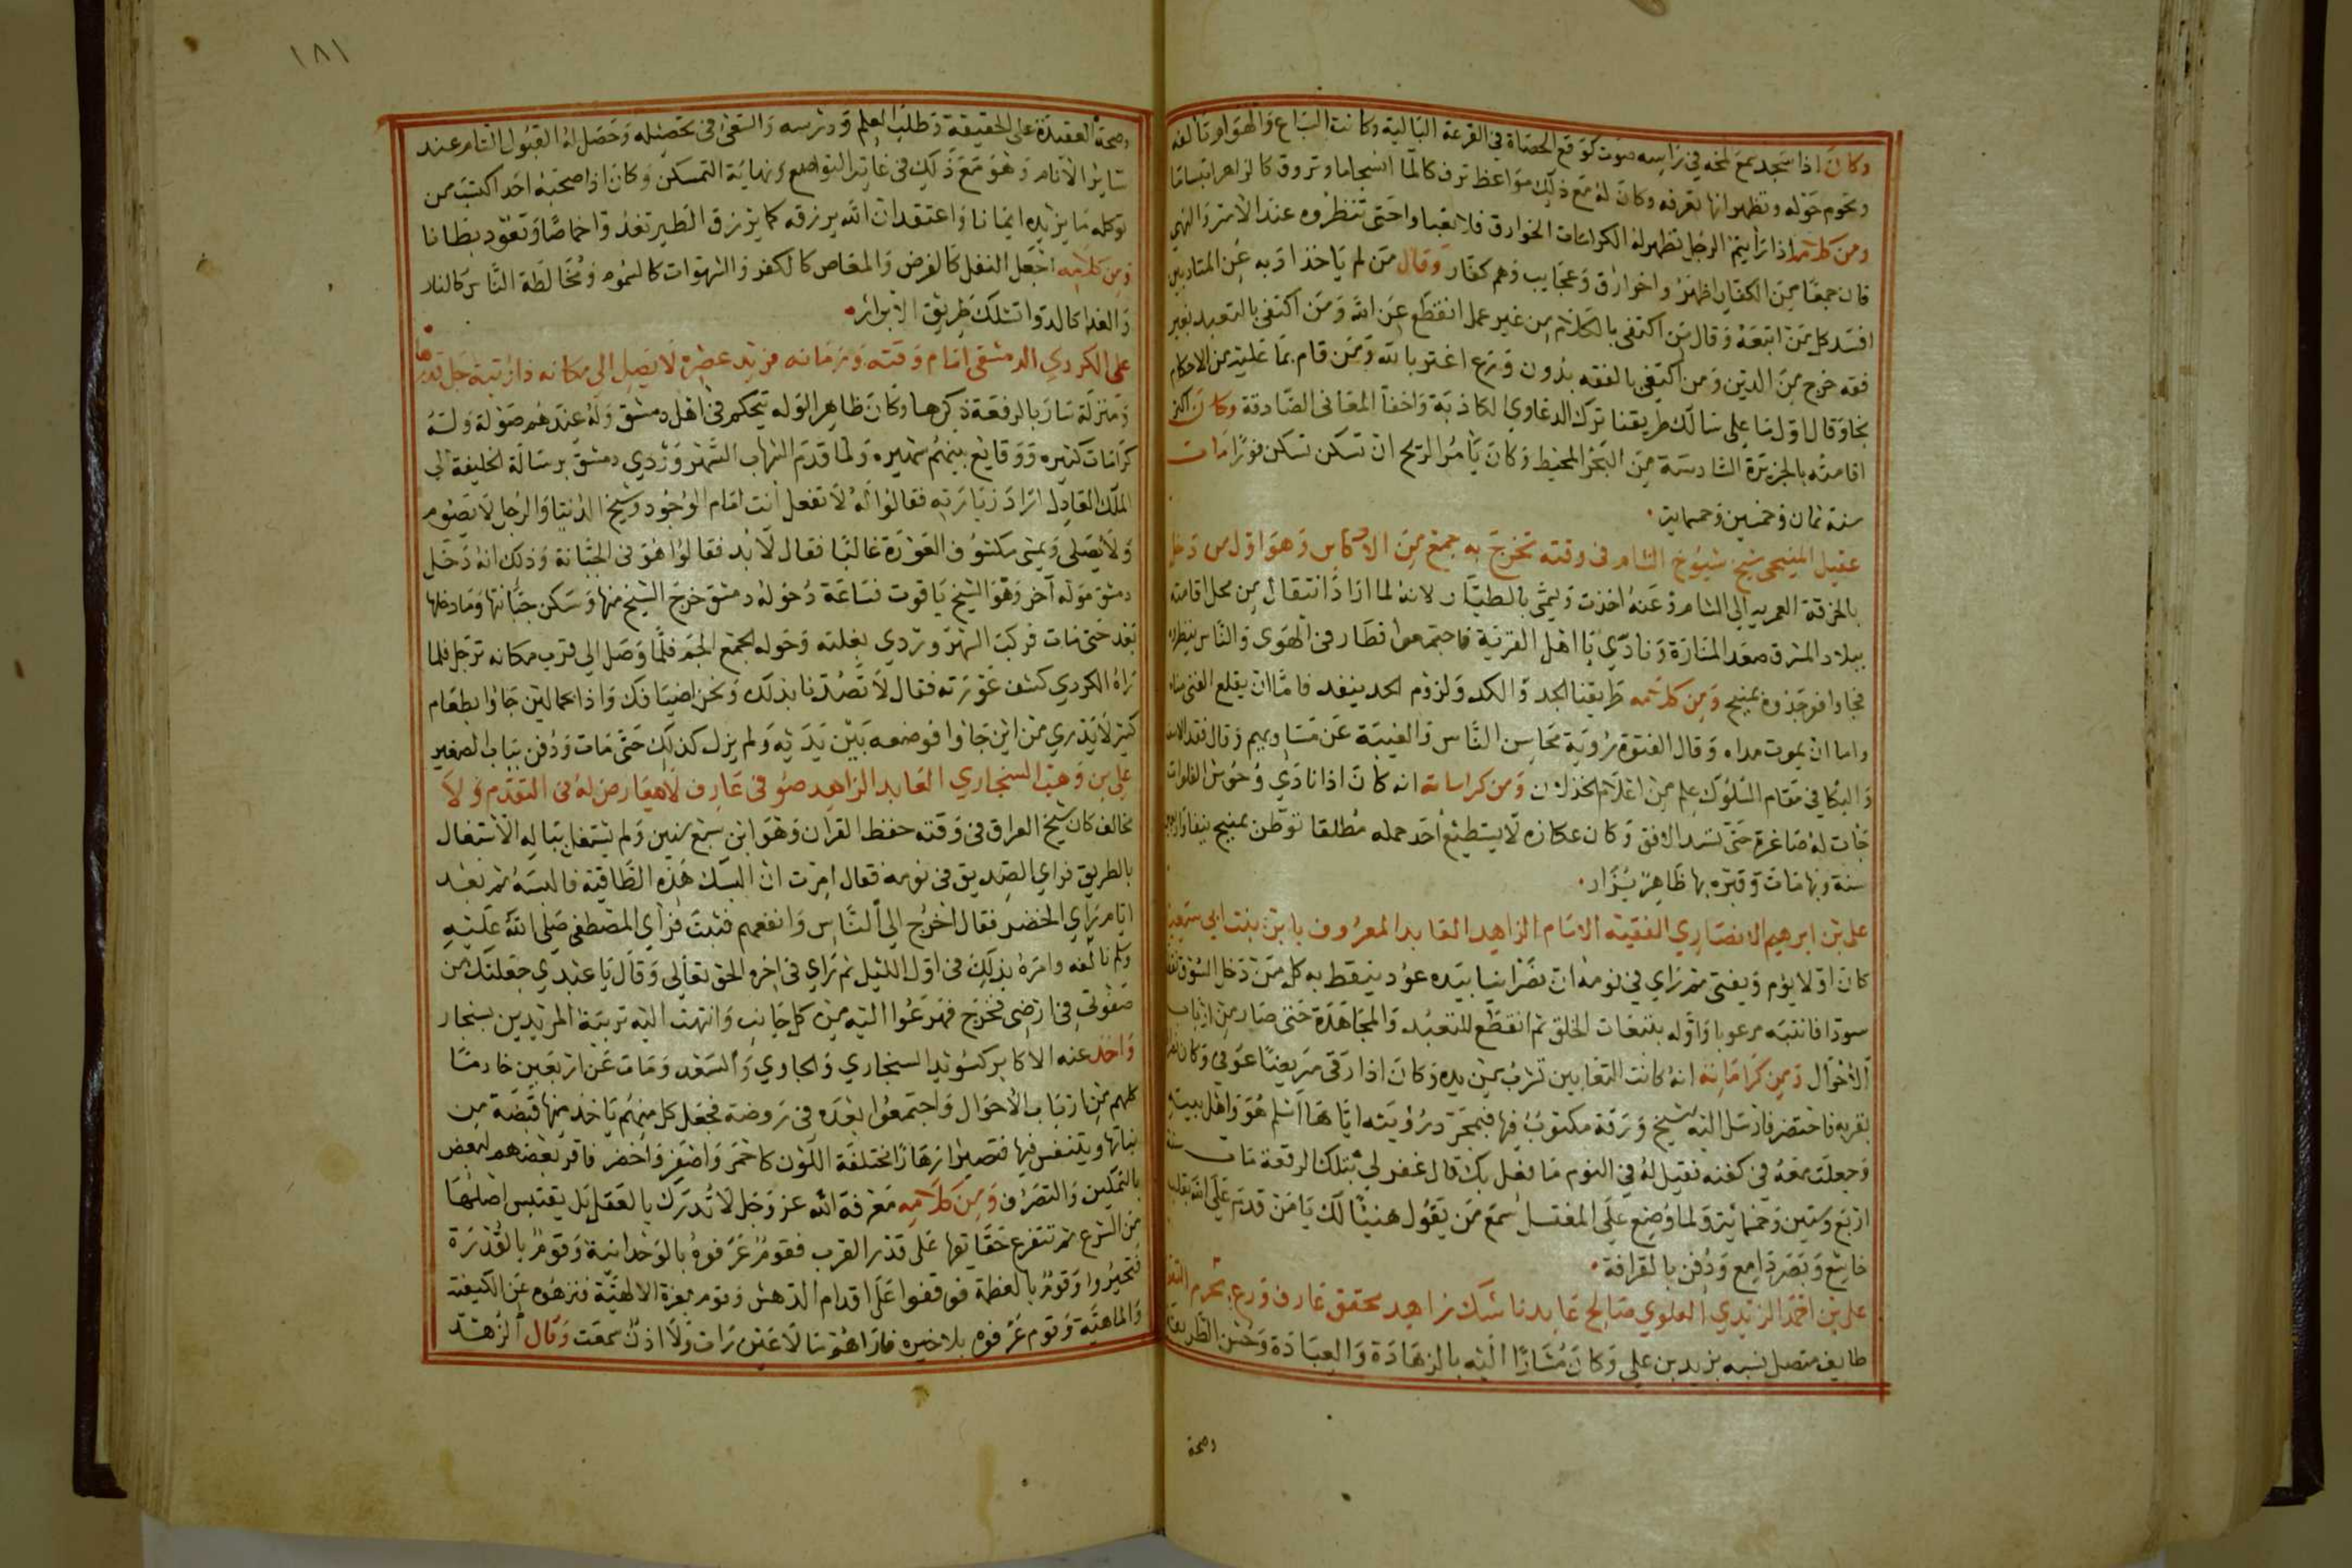 وكان اذا سجد سمع لمخه في راسه صوت كوقع الحصاة في القرعة البالية وكانت السباع والهوام تالفه
وتحوم حوله وتظهر انها تعرفه وكان له مع ذلك مواعظ ترف كالماء انسجاما وتروق كالزاهر ابتساما
ومن كلامه اذا رأيتم الرجل تظهر له الكرامات الخوارق فلا تعبيا واحتى تنظروه عند الامر والنهي
فان جمعا من الكفار اظهروا خوارق وعجايب وهم كفار وقال من لم ياخذ ادبه عن المتادبين
افسد كل من اتبعه وقال من اكتفى بالكلام من غير عمل انقطع عن الله ومن اكتفى بالتعبد بغير
فقه خرج من الدين ومن اكتفى بالفقه بدون ورع اغتر بالله ومن قام بما عليه من الاحكام
نجا وقال اول ما على سالك طريقنا ترك الدعاوي الكاذبة واخفا المعاني الصادقة وكان اكثر
اقامته بالجزيرة السادسة من البحر المحيط وكان يأمر الريح ان تسكن تسكن فورا مات
سنة ثمان وخمسين وخمسماية
عقيل المنبجي شيخ شيوخ الشام في وقته تخرج به جمع من الاكابر وهو اول من دخل
بالخرقة العمريه الى الشام وعنه اخذت ويسمى بالطيار لانه لما اراد انتقال من محل اقامته
ببلاد المشرق صعد المنارة ونادي يا اهل القرية فاجتمعوا فطار في الهوى والناس ينظرون
فجاوا فوجدوه بمنبج ومن كلامه طريقنا الجد والكد ولزوم الحد ينفد فاما ان يبلغ الفتى مناه
واما ان يموت بداه وقال الفتوة رؤية محاسن الناس والغيبة عن مساويهم وقال فقد الاسف
والبكا في مقام السلوك علم من اعلام الخذلان ومن كراماته انه كان اذا نادي وحوش الفلوات
جات له صاغرة حتى تسد الافق وكان عكازه لا يستطيع احد حمله مطلقا توطن بمنبج نيفا واربعين
سنة وبها مات وقبره بها ظاهر يزار
علي بن ابرهيم الانصاري الفقيه الامام الزاهد العابد المعروف بابن بنت ابي سعيد
كان اولا يؤم ويفتي ثم راي في نومه ان نصرانيا بيده عود ينقط به كل من دخل السوق نقط
سودا فانتبه مرعوبا واوله بتبعات الخلق ثم انقطع للتعبد والمجاهدة حتى صار من ارباب
الاحوال ومن كراماته انه كانت الثعابين تشرب من يده وكان اذا رقى مريضا عوفي وكان
بقربه فاحتضر فارسل اليه الشيخ ورقة مكتوب فيها فبمجرد رؤيته اياها اسلم هو واهل بيته
وجعلت معه في كفنه فقيل له في النوم ما فعل بك قال غفر لي بتلك الرقعة مات سنة
اربع وستين وخمسائة ولما وضع على المغتسل سمع من يقول هنيئا لك يا من قدم على الله بقلب
خاشع وبصر دامع ودفن بالقرافة
علي بن احمد الزيدي العلوي صالح عابد ناسك زاهد محقق عارف ورع بحرم
طايف متصل نسبه بزيد بن علي وكان مشارا اليه بالزهادة والعبادة وحسن الطريقة
وصحة
١٨١
وصحة العقيدة على الحقيقة وطلب العلم ودرسه والسعي في تحصيله وحصل له القبول التام عند
ساير الانام وهو مع ذلك في غاية التواضع ونهاية التمسكن وكان اذا صحبه احد اكتسب من
توكله ما يزيده ايمانا واعتقد ان الله يرزقه كما يرزق الطير تغدوا خماصا وتعود بطانا
ومن كلامه اجعل النفل كالفرض والمعاصى كالكفر والشهوات كالسموم ومخالطة الناس كالنار
والغدا كالدوا تسلك طريق الابرار
علي الكردي الدمشقي امام وقته وزمانه فريد عصره لا يصل الى مكانه ذا رتبة جل قدرها
ومنزلة سار بالرفعة ذكرها وكان ظاهر الوله يتحكم في اهل دمشق وله عندهم صولة وله
كرامات كثيره ووقايع بينهم شهيره ولما قدم الشهاب السهروردي دمشق برسالة الخليفة الى
الملك العادل اراد زيارته فقالوا له لا تفعل انت امام الوجود وشيخ الدنيا والرجل لا يصوم
ولا يصلي ويمشي مكشوف العورة غالبا فقال لا بد فقالوا هو في الجبانة وذلك انه دخل
دمشق موله آخر وهو الشيخ ياقوت فساعة دخوله دمشق خرج الشيخ منها وسكن جبانتها وما دخلها
بعد حتى مات فركب السهروردي بغلته وحوله الجمع الجم فلما وصل الى قرب مكانه ترجل فلما
راه الكردي كشف عورته فقال لا تصدنا بذلك ونحن اضيافك واذا بحمالين جاوا بطعام
كثير لا يدري من اين جاوا فوضعه بين يديه ولم يزل كذلك حتى مات ودفن بباب الصغير
علي بن وهب السنجاري العابد الزاهد صوفي عارف لا معارض له في التقدم ولا
مخالف كان شيخ العراق في وقته حفظ القران وهو ابن سبع سنين ولم يشتغل بباله الاشتغال
بالطريق فراي الصديق في نومه فقال امرت ان البسك هذه الطاقية فالبسه ثم بعد
ايام راي الخضر فقال اخرج الى الناس وانفعهم فثبت فراي المصطفى صلى الله عليه
وسلم نالفه وامره بذلك في اول الليل ثم راي في اخره الحق تعالى وقال يا عبدي جعلتك من
صفوتي في ارضي فخرج فهرعوا اليه من كل جانب وانتهت اليه تربية المريدين بسنجار
واخذ عنه الاكابر كسويد السنجاري والجاوي والسعد ومات عن اربعين خادما
كلهم من ارباب الاحوال واجتمعوا بعده في روضة فجعل كل منهم ياخذ منها قبضة من
نباتها ويتنفس فيها فتصير ازهارا مختلفة اللون كاحمر واصفر واخضر فاقر بعضهم لبعض
بالتمكين والتصرف ومن كلامه معرفة الله عز وجل لا تدرك بالعقل بل يقتبس اصلها
من الشرع ثم تتفرع حقايقها على قدر القرب فقوم عرفوه بالوحدانية وقوم بالقدرة
فتحيروا وقوم بالعظمة فوقفوا على اقدام الدهش وقوم بعزة الالهية فنزهوه عن الكيفية
والماهية وقوم عرفوه بلا حيره فاراهم مالا عين رات ولا اذن سمعت وقال الزهد